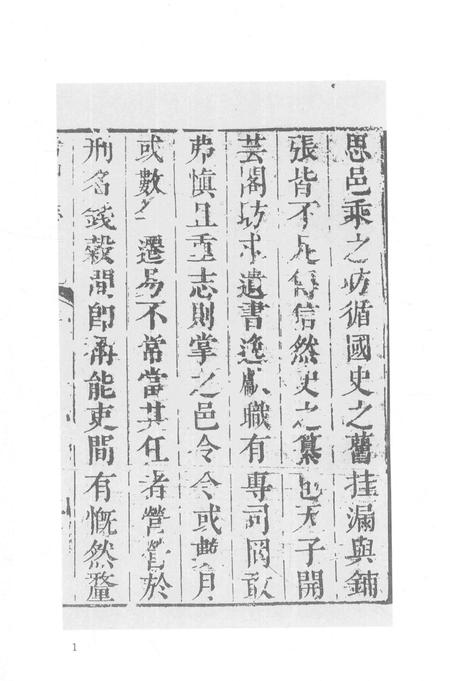 思邑乘之昉循國史之舊挂漏與鋪
張皆不足信信然史之纂也天子開
芸閣訪求遺書逸獻職有專司罔敢
弗慎且重志則掌之邑令令或數月
或數年遷易不常當其任者營營於
刑名錢穀間即稱能吏間有慨然釐
1